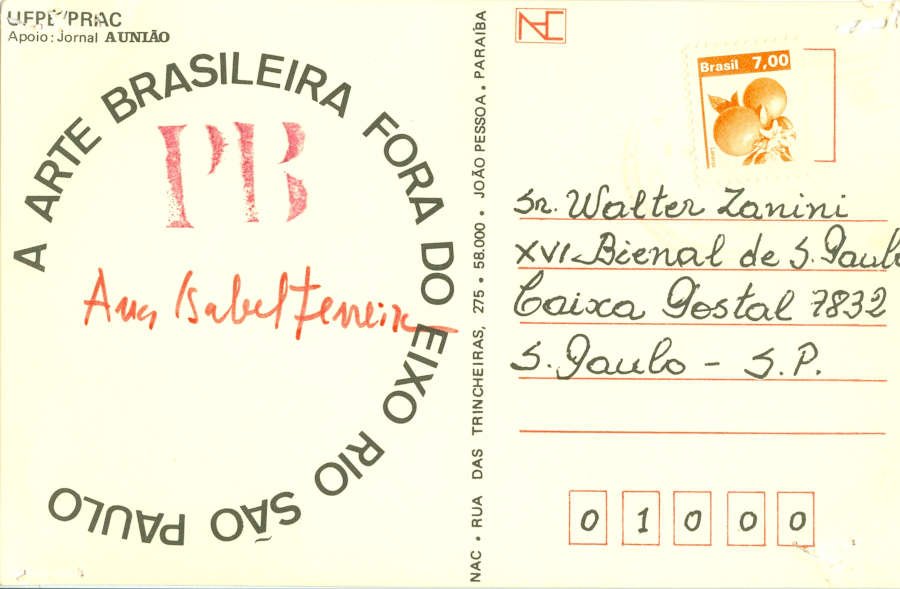 UFPB/PRAC
Apoio: Jornal A UNIÃO
A ARTE BRASILEIRA FORA DO EIXO RIO SÃO PAULO
PB
Ana Isabel Ferreira
NAC • RUA DAS TRINCHEIRAS, 275 • 58.000 • JOÃO PESSOA • PARAÍBA
NAC
Brasil 7,00
Sr. Walter Zanini
XVI-Bienal de S. Paulo
Caixa Postal 7832
S. Paulo - S.P.
0 1 0 0 0